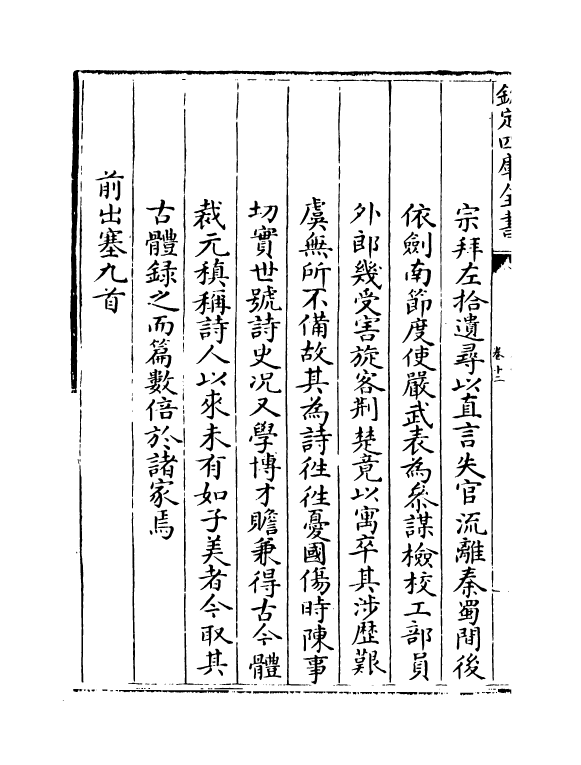 欽定四庫全書
卷十二
宗拜左拾遺尋以直言失官流離秦蜀間後
依劍南節度使嚴武表為叅謀檢校工部員
外郎幾受害旋客荆楚竟以寓卒其涉歴艱
虞無所不備故其為詩徃徃憂國傷時陳事
切實世號詩史况又學博才贍兼得古今體
裁元稹稱詩人以來未有如子美者今取其
古體録之而篇數倍於諸家焉
前出塞九首